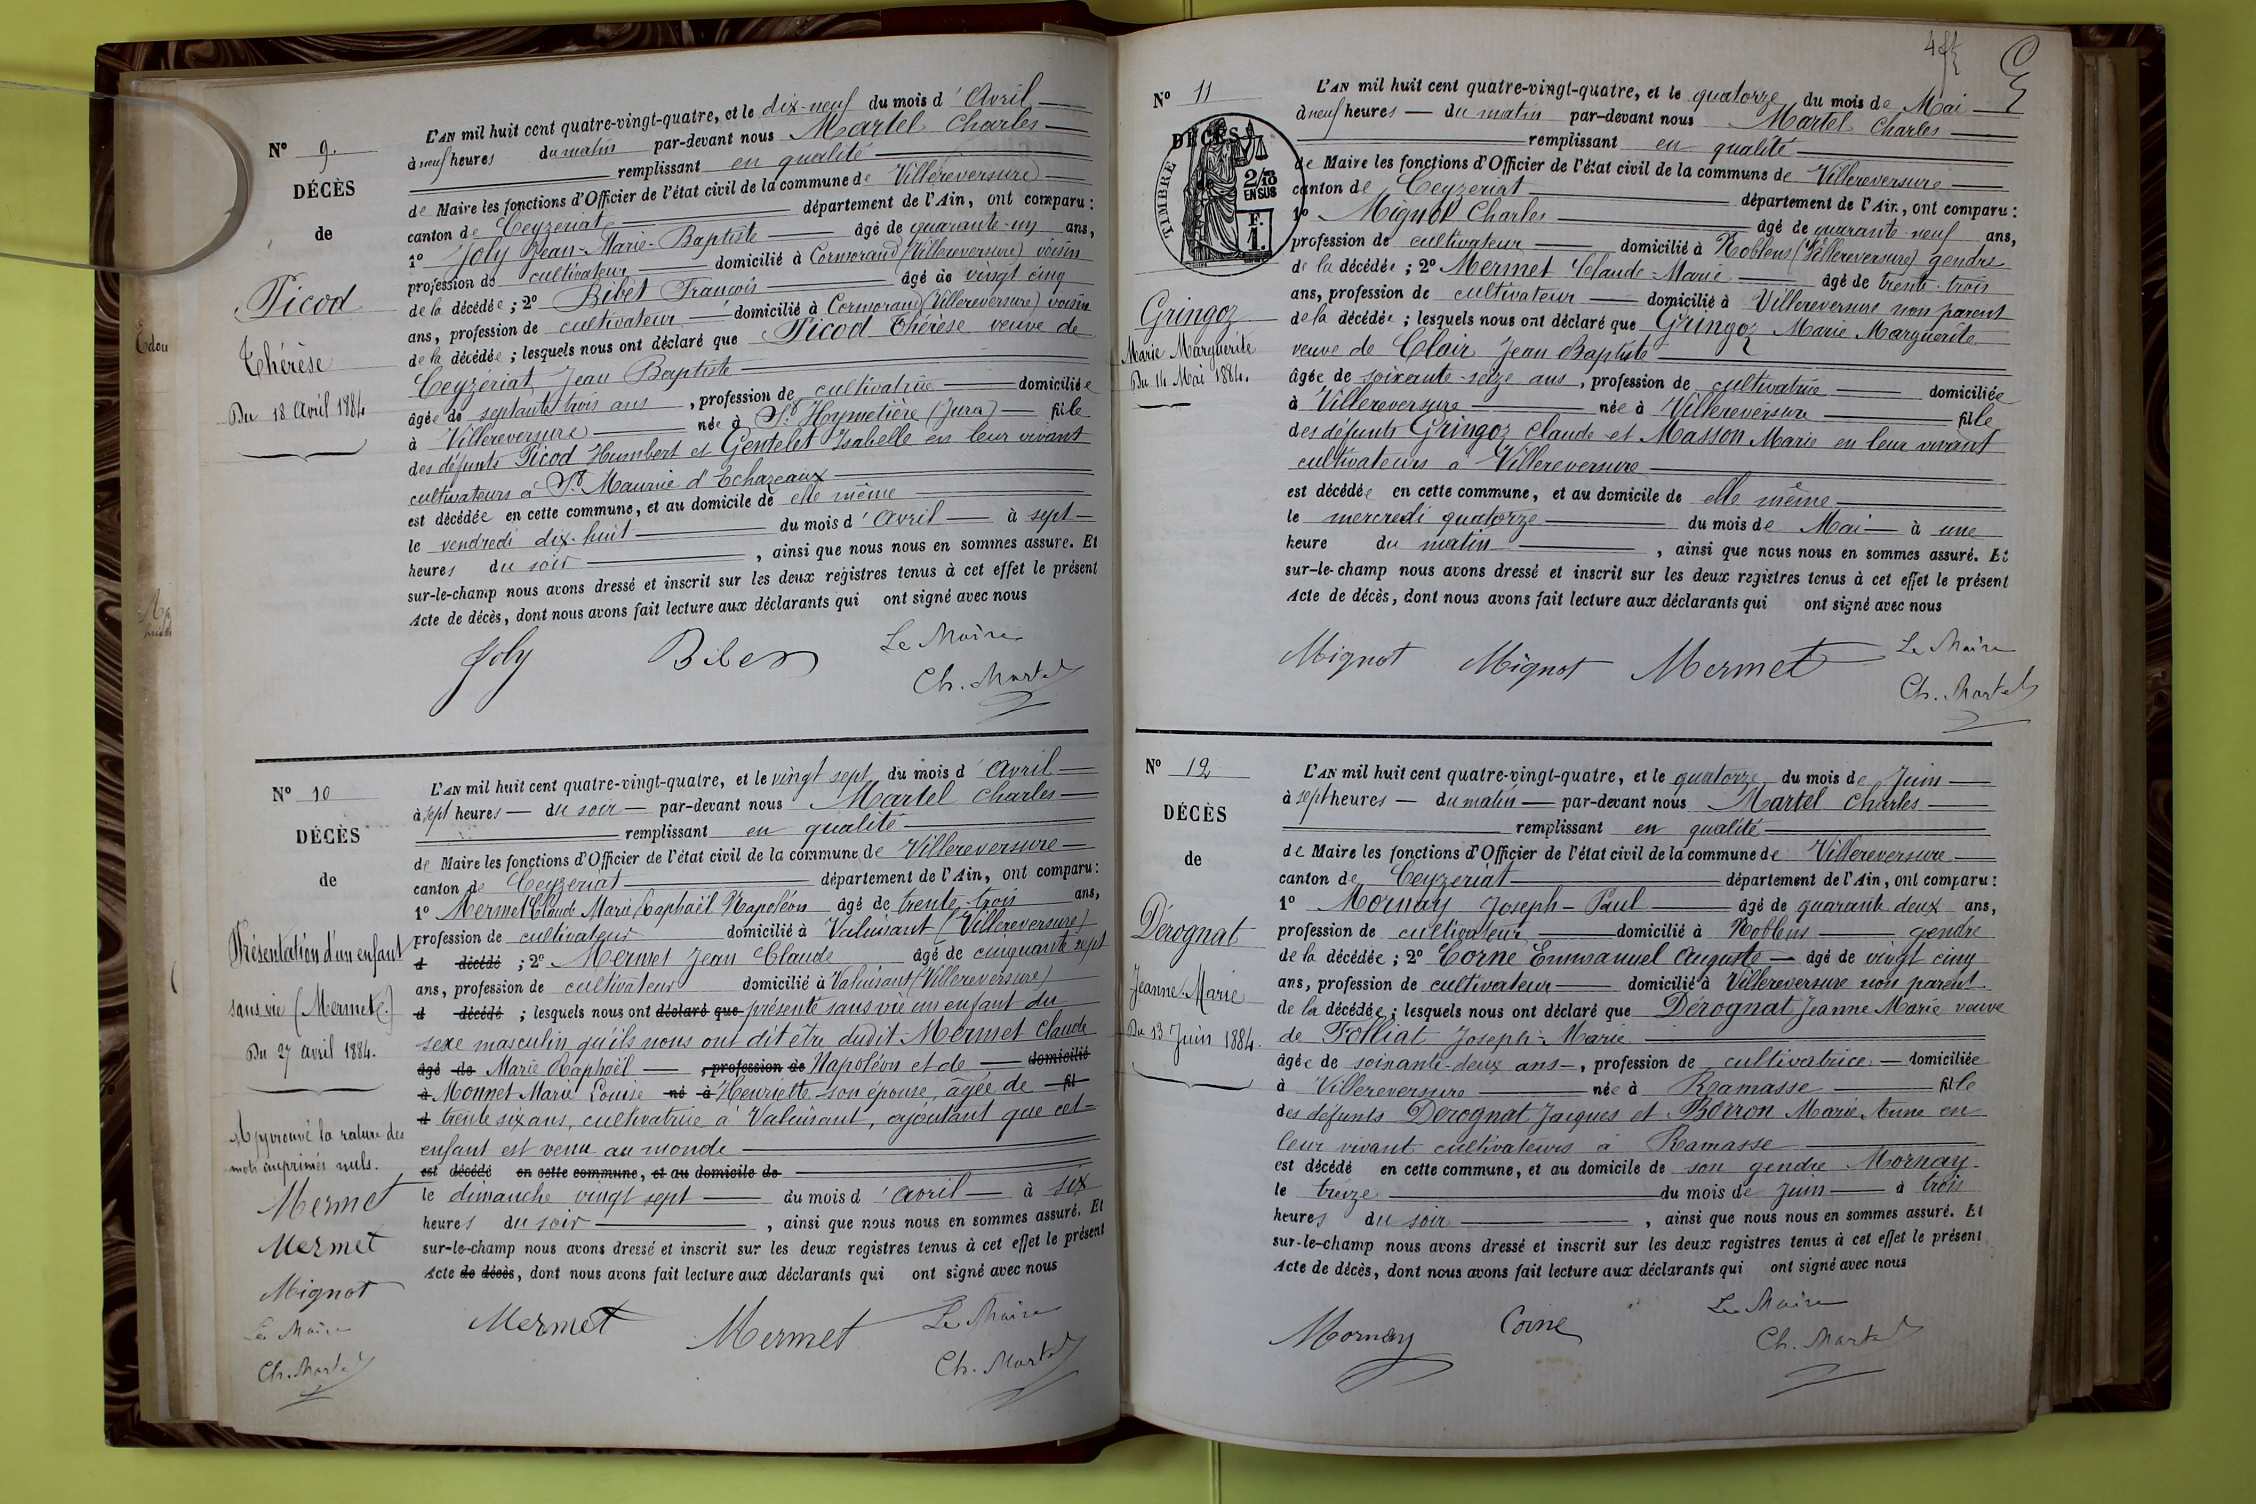 N° 9.
DÉCÈS
de
Picod
Thérèse
Du 18 Avril 1884
L'AN mil huit cent quatre-vingt-quatre, et le dix-neuf du mois d'Avril
à neuf heures du matin par-devant nous Martel Charles
remplissant en qualité
de Maire les fonctions d'Officier de l'état civil de la commune de Villereversure
canton de Ceyzeriat département de l'Ain, ont comparu :
1° Joly Jean-Marie-Baptiste âgé de quarante-un ans,
profession de cultivateur domicilié à Cormorand (Villereversure) voisin
de la décédée ; 2° Bibet François âgé de vingt cinq
ans, profession de cultivateur domicilié à Cormorand (Villereversure) voisin
de la décédée ; lesquels nous ont déclaré que Picod Thérèse veuve de
Ceyzériat Jean Baptiste
âgée de septante trois ans, profession de cultivatrice domiciliée
à Villereversure née à St. Hymetière (Jura) fille
des défunts Picod Humbert et Gentelet Isabelle en leur vivant
cultivateurs à St. Maurice d'Echazeaux
est décédée en cette commune, et au domicile de elle même
le vendredi dix-huit du mois d'Avril à sept
heures du soir, ainsi que nous nous en sommes assuré. Et
sur-le-champ nous avons dressé et inscrit sur les deux registres tenus à cet effet le présent
Acte de décès, dont nous avons fait lecture aux déclarants qui ont signé avec nous
Joly Le Maire
Ch. Martel
N° 10
DÉCÈS
de
Présentation d'un enfant
sans vie (Mermet)
Du 27 avril 1884.
Approuvé la rature des
mots imprimés nuls.
Mermet
Mermet
Mignot
Le Maire
Ch. Martel
L'AN mil huit cent quatre-vingt-quatre, et le vingt sept du mois d'Avril
à sept heures du soir par-devant nous Martel Charles
remplissant en qualité
de Maire les fonctions d'Officier de l'état civil de la commune de Villereversure
canton de Ceyzeriat département de l'Ain, ont comparu :
1° Mermet Claude Marie Raphaël Napoléon âgé de trente-trois ans,
profession de cultivateur domicilié à Valuisant (Villereversure)
d décédé ; 2° Mermet Jean Claude âgé de cinquante sept
ans, profession de cultivateur domicilié à Valuisant (Villereversure)
d décédé ; lesquels nous ont déclaré que présenté sans vie un enfant du
sexe masculin qu'ils nous ont dit être dudit Mermet Claude
âgé de Marie Raphaël , profession de Napoléon et de domicilié
à Monnet Marie Louise né à Henriette son épouse, âgée de fil
d trente six ans, cultivatrice à Valuisant, ajoutant que cet
enfant est venu au monde
est décédé en cette commune, et au domicile de
le dimanche vingt sept du mois d'Avril à six
heures du soir, ainsi que nous nous en sommes assuré. Et
sur-le-champ nous avons dressé et inscrit sur les deux registres tenus à cet effet le présent
Acte de décès, dont nous avons fait lecture aux déclarants qui ont signé avec nous
Mermet Mermet Le Maire
Ch. Martel
N° 11
DÉCÈS
TIMBRE
2/10
EN SUS
F.
1.
Gringoz
Marie Marguerite
Du 14 Mai 1884.
L'AN mil huit cent quatre-vingt-quatre, et le quatorze du mois de Mai
à neuf heures du matin par-devant nous Martel Charles
remplissant en qualité
de Maire les fonctions d'Officier de l'état civil de la commune de Villereversure
canton de Ceyzeriat département de l'Ain, ont comparu :
1° Mignot Charles âgé de quarante-neuf ans,
profession de cultivateur domicilié à Noblens (Villereversure) gendre
de la décédée ; 2° Mermet Claude-Marie âgé de trente-trois
ans, profession de cultivateur domicilié à Villereversure non parent
de la décédée ; lesquels nous ont déclaré que Gringoz Marie Marguerite
veuve de Clair Jean Baptiste
âgée de soixante-seize ans, profession de cultivatrice domiciliée
à Villereversure née à Villereversure fille
des défunts Gringoz Claude et Masson Marie en leur vivant
cultivateurs à Villereversure
est décédée en cette commune, et au domicile de elle même
le mercredi quatorze du mois de Mai à une
heure du matin, ainsi que nous nous en sommes assuré. Et
sur-le-champ nous avons dressé et inscrit sur les deux registres tenus à cet effet le présent
Acte de décès, dont nous avons fait lecture aux déclarants qui ont signé avec nous
Mignot Mignot Mermet Le Maire
Ch. Martel
N° 12
DÉCÈS
de
Dérognat
Jeanne Marie
Du 13 Juin 1884.
L'AN mil huit cent quatre-vingt-quatre, et le quatorze du mois de Juin
à sept heures du matin par-devant nous Martel Charles
remplissant en qualité
de Maire les fonctions d'Officier de l'état civil de la commune de Villereversure
canton de Ceyzeriat département de l'Ain, ont comparu :
1° Mornay Joseph-Paul âgé de quarante deux ans,
profession de cultivateur domicilié à Noblens gendre
de la décédée ; 2° Corne Emmanuel Auguste âgé de vingt cinq
ans, profession de cultivateur domicilié à Villereversure non parent
de la décédée ; lesquels nous ont déclaré que Dérognat Jeanne Marie veuve
de Folliat Joseph-Marie
âgée de soixante-deux ans, profession de cultivatrice domiciliée
à Villereversure née à Ramasse fille
des défunts Dérognat Jacques et Berron Marie Anne en
leur vivant cultivateurs à Ramasse
est décédé en cette commune, et au domicile de son gendre Mornay
le treize du mois de Juin à trois
heures du soir, ainsi que nous nous en sommes assuré. Et
sur-le-champ nous avons dressé et inscrit sur les deux registres tenus à cet effet le présent
Acte de décès, dont nous avons fait lecture aux déclarants qui ont signé avec nous
Mornay Corne Le Maire
Ch. Martel